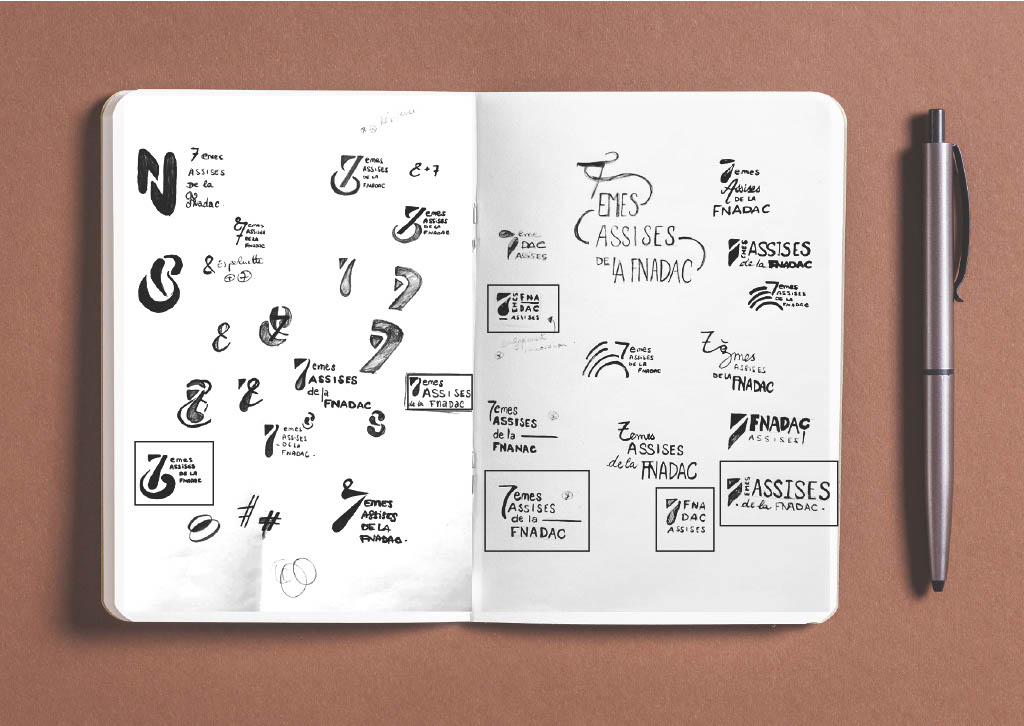 N
7 emes
ASSISES
De la
fnadac.
7emes
ASSISES
DE LA
FNADAC
& + 7
7emes
ASSISES
DE LA
FNADAC
7emes
ASSISES
DE LA
FNADAC
& Esperluette
7
7
7
&
&
7 &
7emes
ASSISES
de la
FNADAC
7emes
ASSISES
de la FNADAC
7emes
ASSISES
DE LA
FNADAC.
7emes
ASSISES
DE LA
FNADAC
# #
7EMES
ASSISES
DE LA
FNADAC.
7
EMES
ASSISES
DE LA FNADAC
7emes
Assises
DE LA
FNADAC
7eme
DAC
ASSISES
7EMES ASSISES
de la FNADAC
7EMES FNA
DAC
ASSISES
7emes
ASSISES
DE LA
FNADAC
7emes
ASSISES
DE LA
FNADAC
7emes
ASSISES
DE LA
FNADAC
7emes
ASSISES
de la
FNANAC
7emes
ASSISES
de la FNADAC
7 FNADAC
ASSISES
7emes
ASSISES
de la
FNADAC
7 FNA
DAC
ASSISES
7EMES ASSISES
. de la FNADAC.